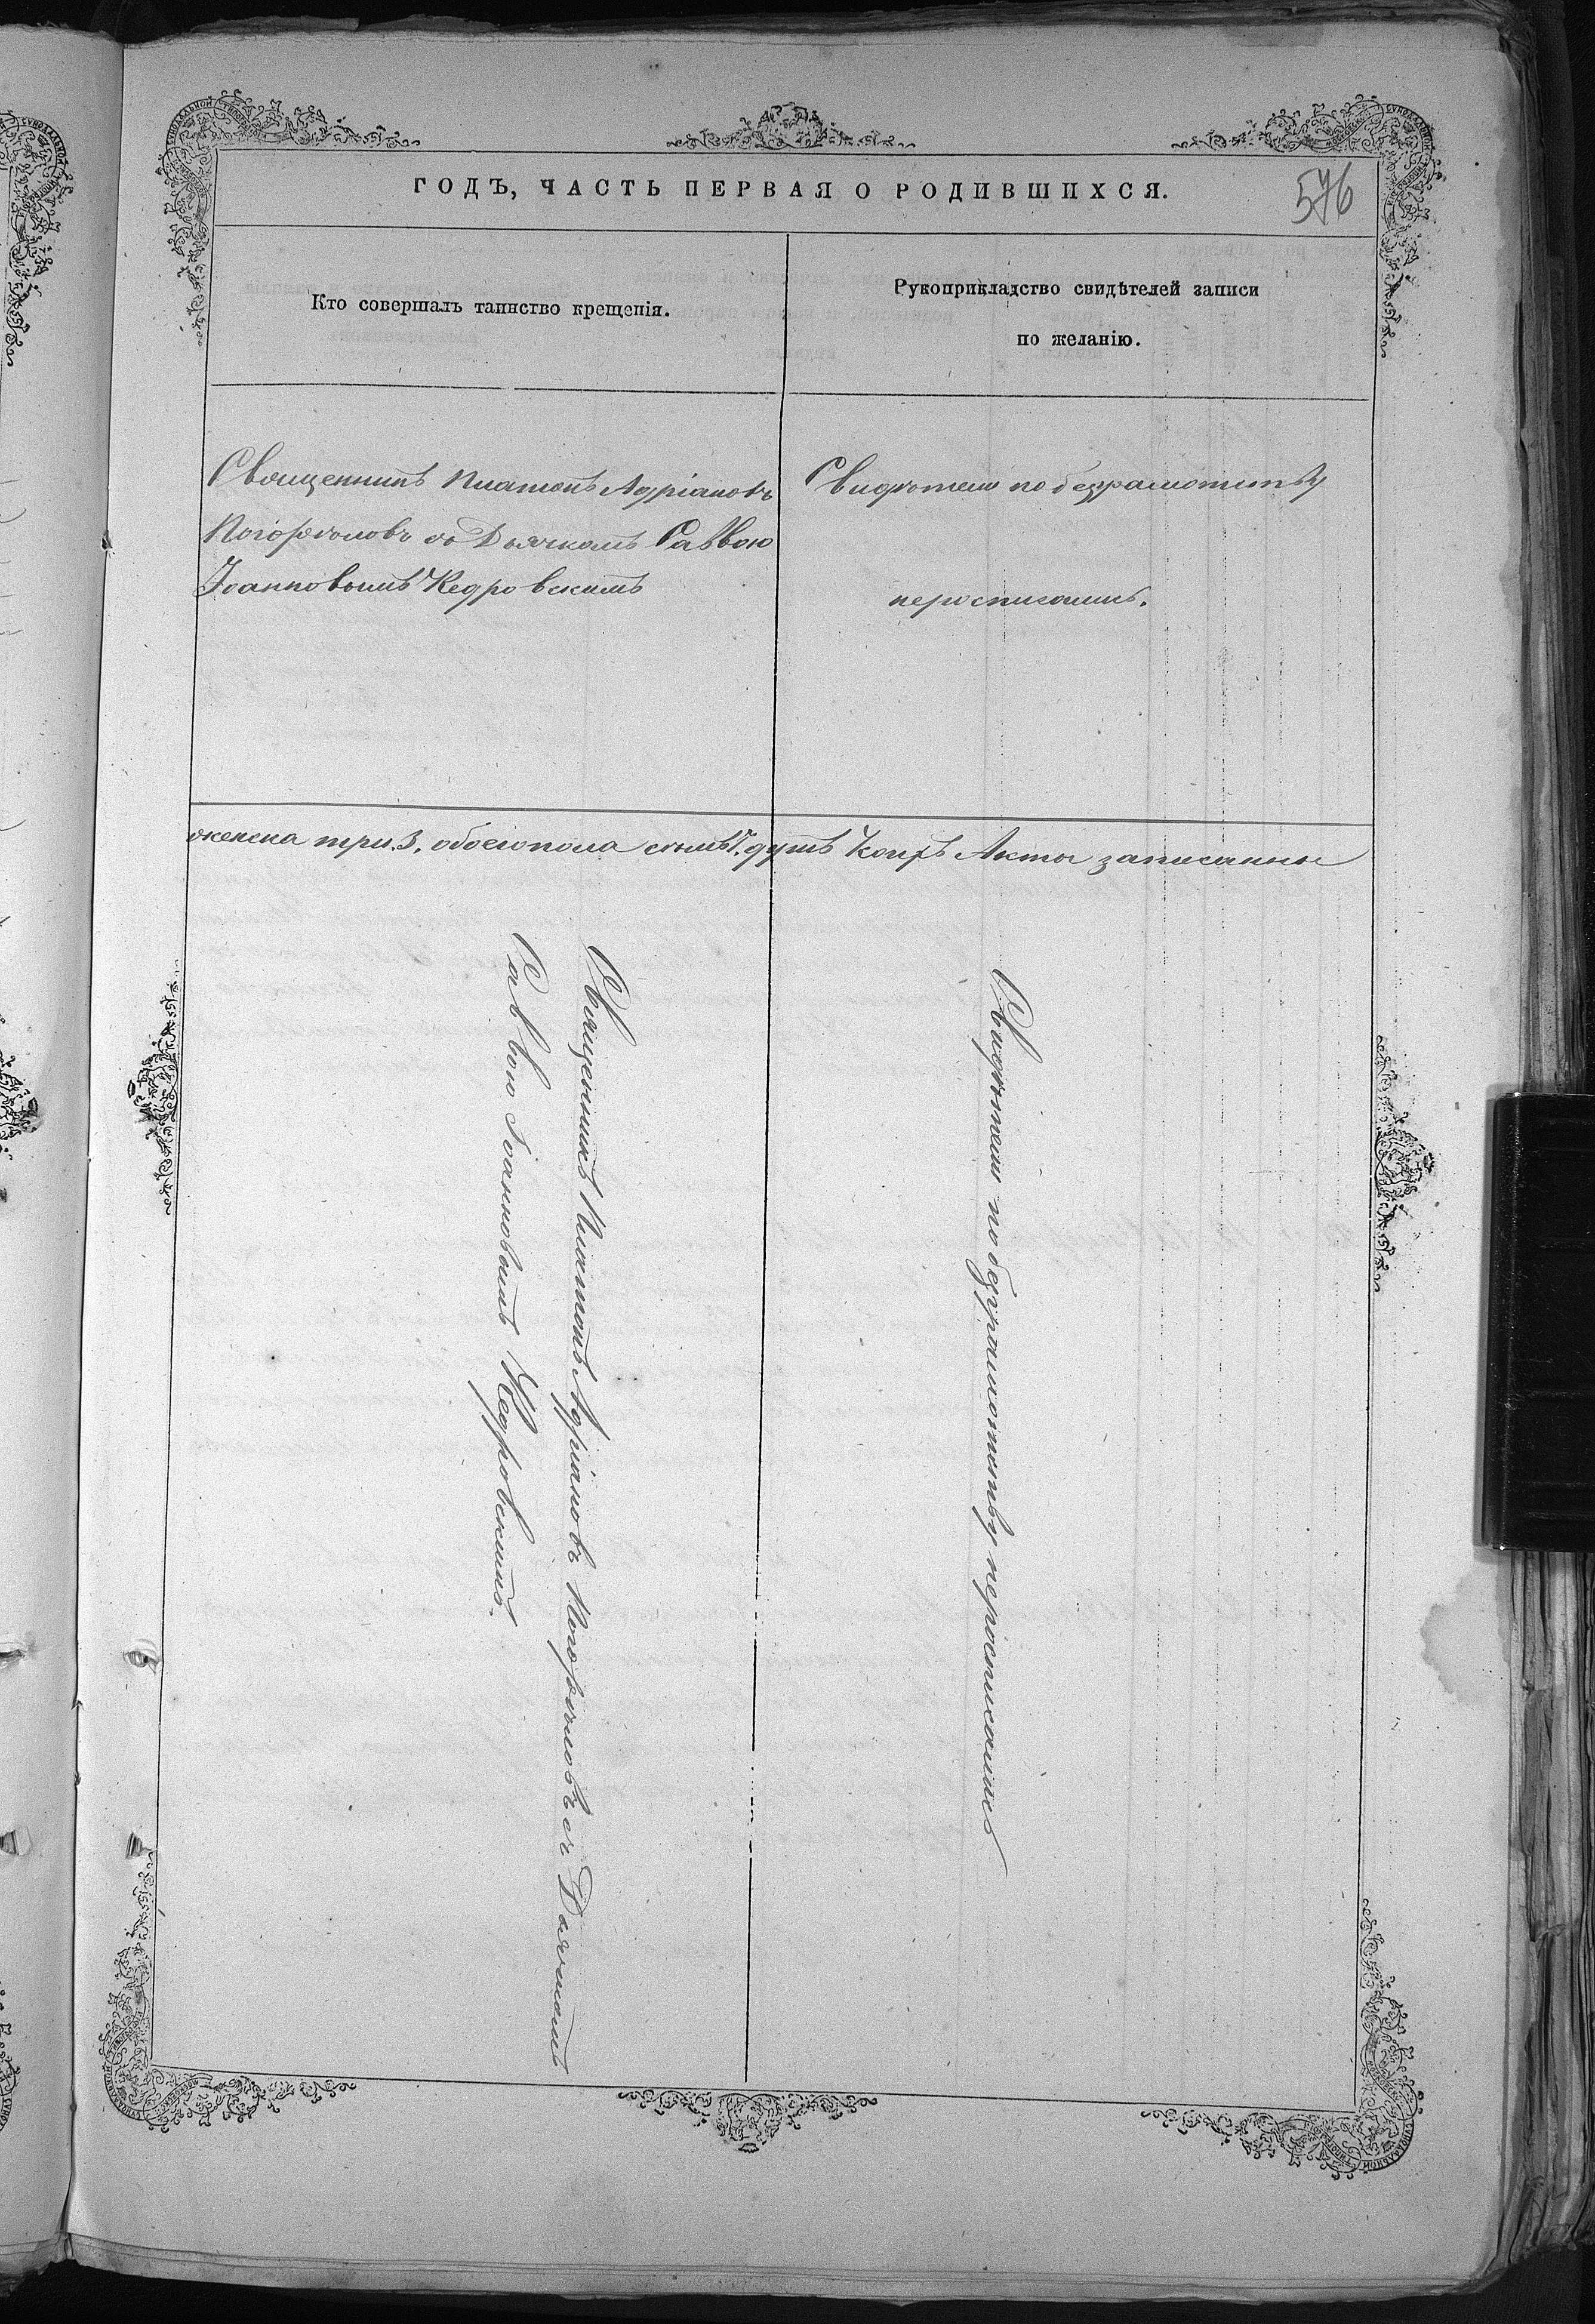 ГОДЪ, ЧАСТЬ ПЕРВАЯ О РОДИВШИХСЯ.
576
Кто совершалъ таинство крещенія.
Рукоприкладство свидѣтелей записи
по желанію.
Священникъ Платонъ Адріановъ
Погорѣловъ съ Дьячкомъ Саввою
Іоанновымъ Кедровскимъ
Свидѣтели по безграмотству
неросписались.
женска три 3, обоего пола семь 7. душъ коихъ Акты записанны
Священникъ Платонъ Адріановъ Погорѣловъ съ Дьячкомъ
Саввою Іоанновымъ Кедровскимъ.
Свидѣтели по безграмотству неросписались